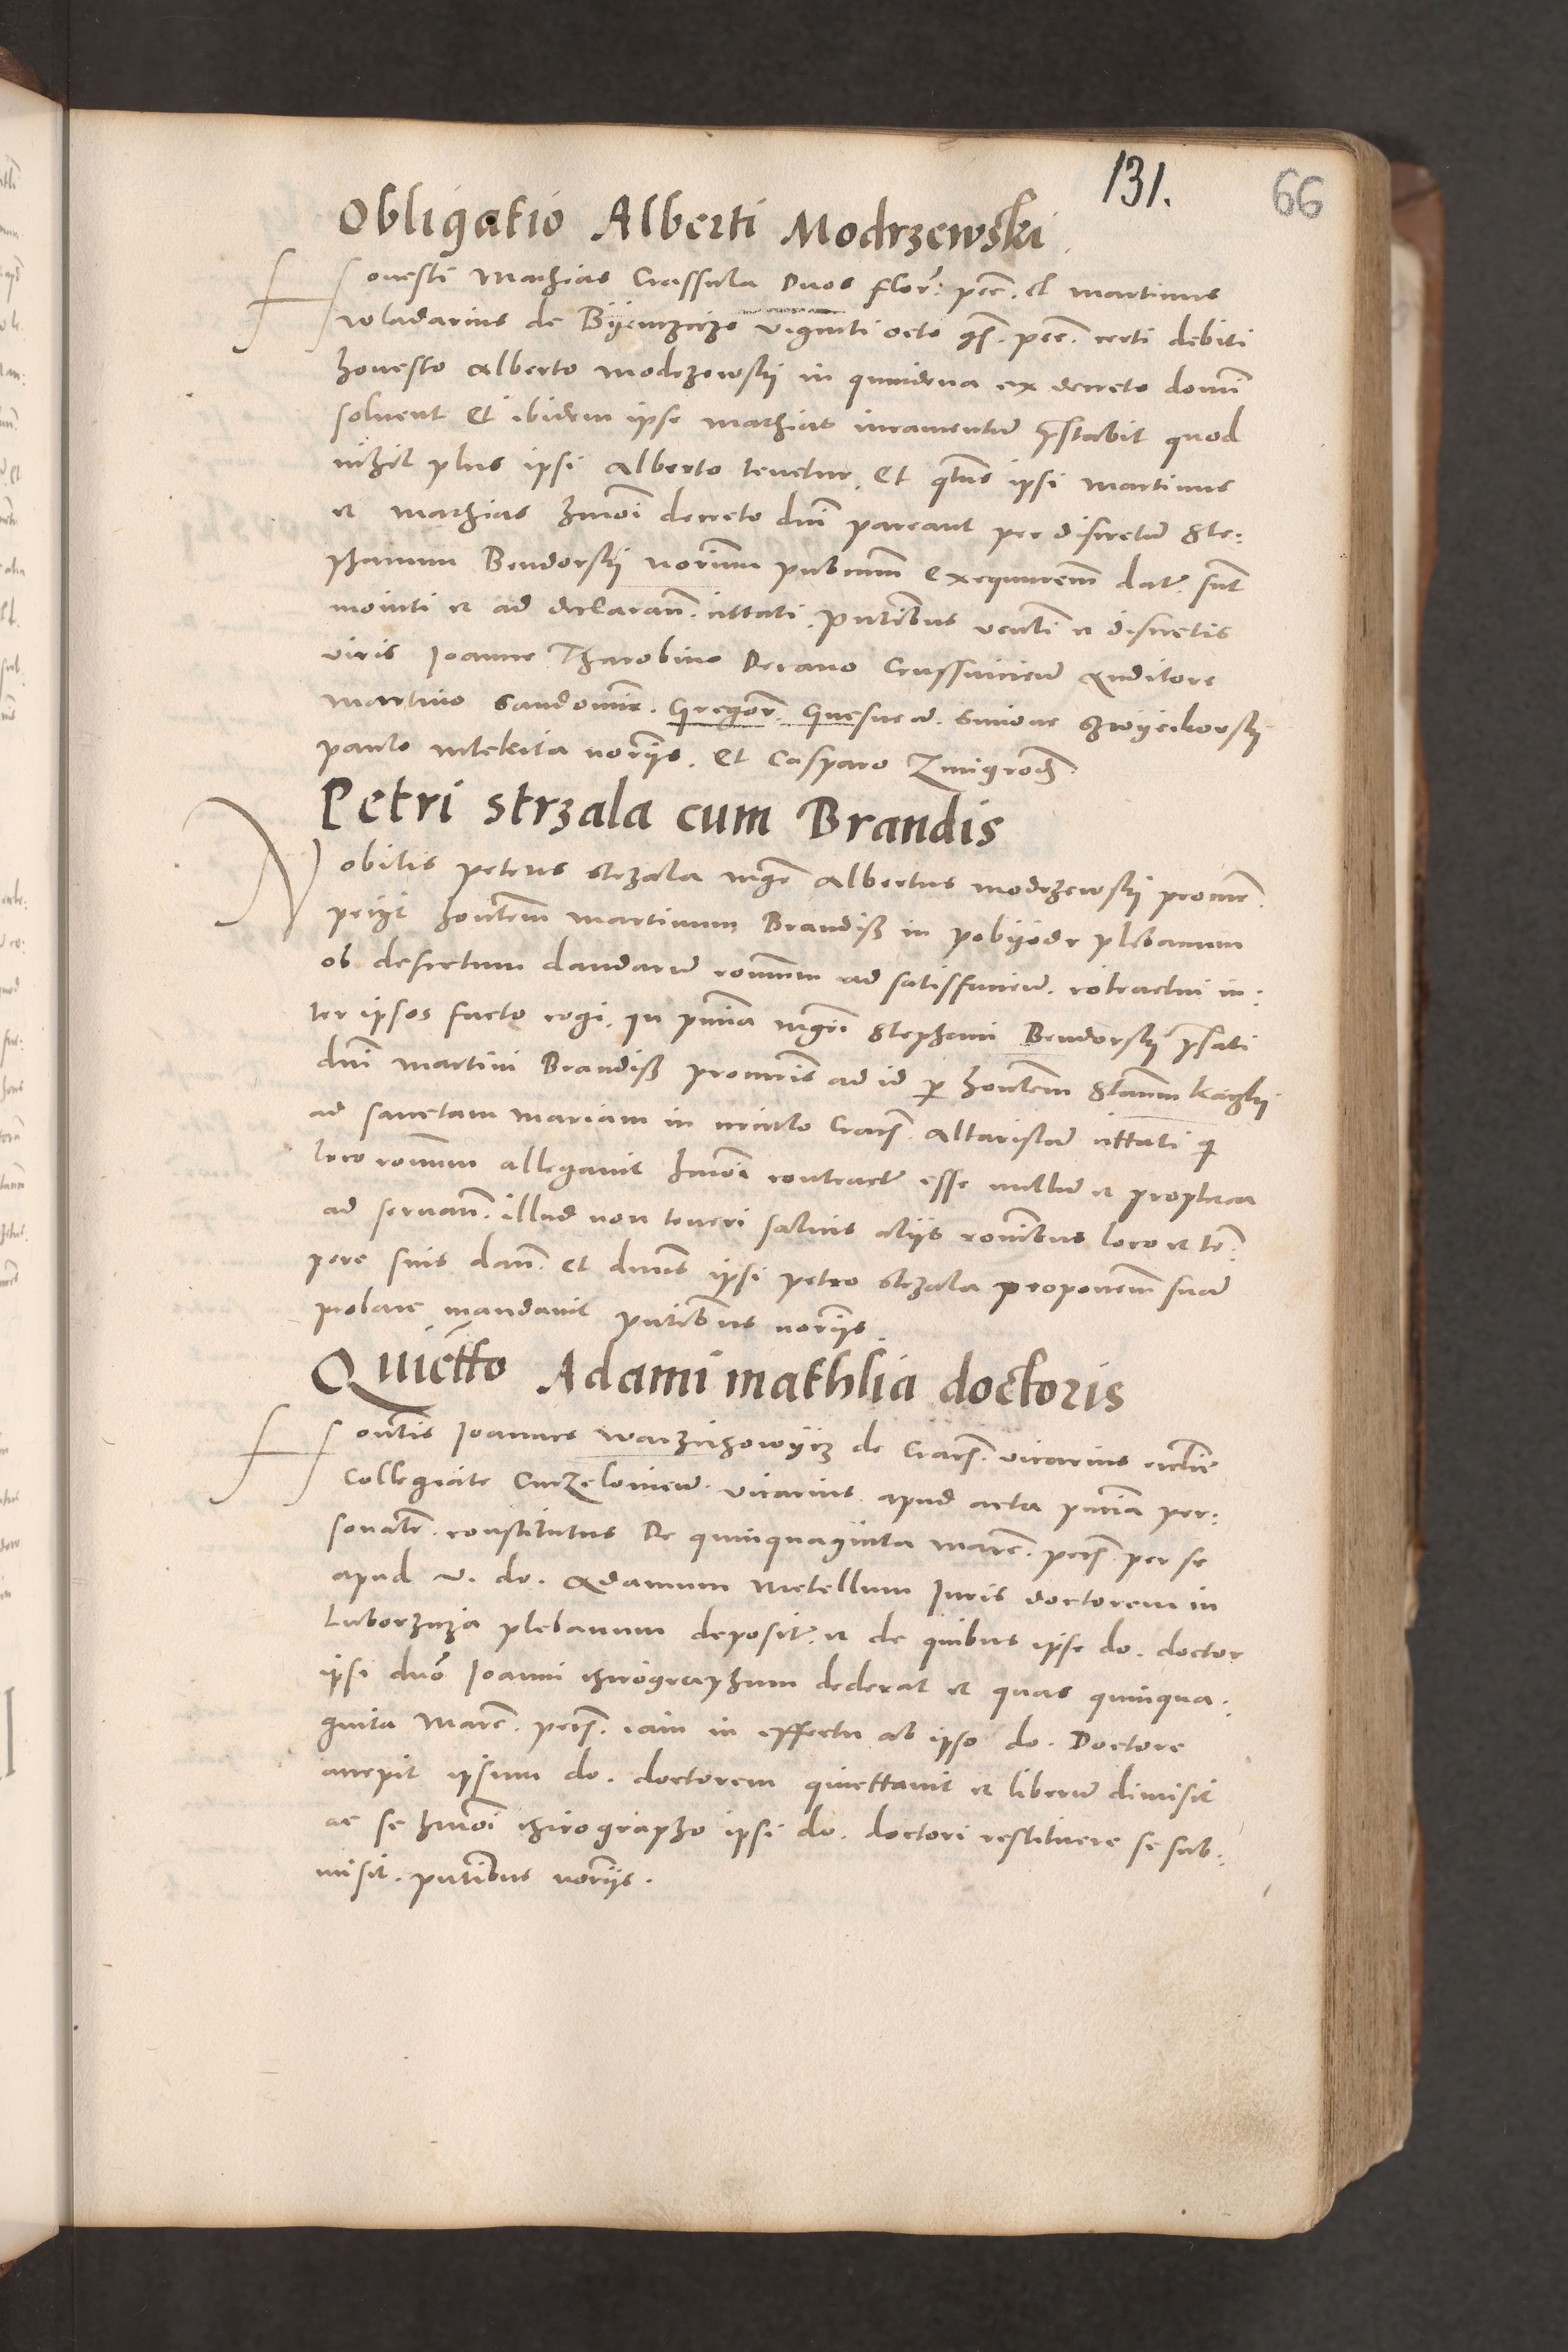 131.
66
Obligatio Alberti Modrzewski
Honesti Mathias Crassula Duos flor: pecc. et martinus
wladarius de Byenczicze viginti octo gs. pecc. certi debiti
honesto Alberto modrzewskij in quindena ex decreto domi
solvent Et ibidem ipse mathias iuramentum prestabit quod
nihil plus ipsi Alberto tenetur. Et qtus ipsi martinus
et mathias hmoi decreto dni pareant per discretum Ste:
phanum Bendorskij norium pubcum exequutem dat. sunt
moniti et ad declarann. cittati. pntibus venli et discretis
viris Joanne Tharobino Decano Crussvicien Auditore
Martino Sandomir. Gregor. Gnesnen. Simone
paulo mlekita noriis. Et Casparo Zmigrod
Petri strzala cum Brandis
Nobilis petrus strzala mgri Albertus modrzewskij procur.
petijt hontem martinum Brandiss in pobyodr plebanum
ob defectum dandarum romum ad satisfaciend. contractui in:
ter ipsos facto cogi. In pntia mgri Stephani Bendorskij prefati
dni martini Brandiss procuris ad id per hontem Stanm kaczkij
ad sanctam mariam in circulo Cracs. altaristam cittati qi
loco romum allegavit hmoi contractum esse nullum et propterea
ad servann. illud non teneri salvis aliis ronibus loco et tem:
pore suis dann. Et dnus ipsi petro strzala proponem suam
probare mandavit pntibus noriis.
Quietto Adami mathlia doctoris
Hontis Joannes warzichowijcz de Cracs. vicarius ecclie
Collegiate Curzelovien. vicarius apud acta pntia per:
sonalr. constitutus De quinquaginta marc. pecs. per se
apud v. do. Adamum Metellum Juris doctorem in
Luborzicza plebanum deposit. et de quibus ipse do. doctor
ipsi dno Joanni chirographum dederat et quas quinqua.
ginta Marc. pecs. iam in effectu ab ipso do. Doctore
accepit ipsum do. doctorem quiettavit et liberum dimisit
ac se hmoi chirographo ipsi do. doctori restituere se sub.
misit. pntibus noriis.